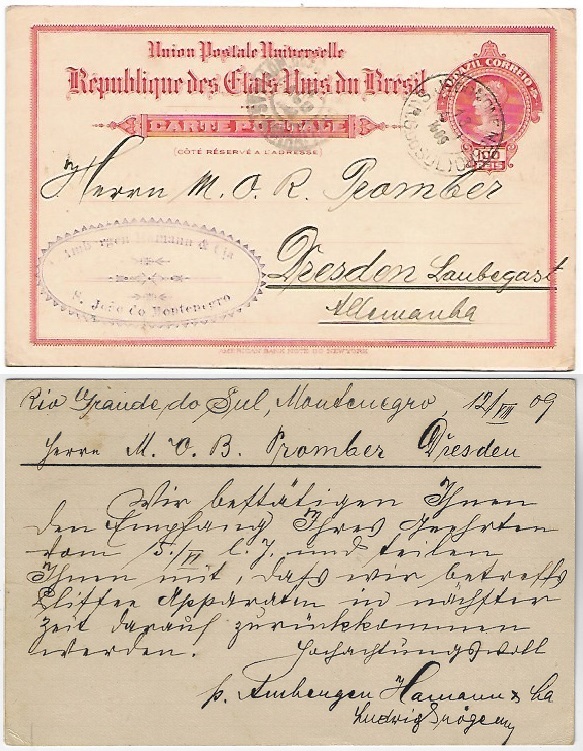 Union Postale Universelle
BRAZIL CORREIO
Republique des Etats Unis du Brésil
CARTE POSTALE
(CÔTÉ RÉSERVÉ A L'ADRESSE)
100
REIS
Herrn M. O. R. Promber
Hamann & Cia
S. João do Montenegro
Dresden Laubegast
Allemanha
AMERICAN BANK NOTE CO. NEW YORK
Rio Grande do Sul, Montenegro, 12/VIII 09
Herrn M. O. B. Promber Dresden
Wir bestätigen Ihnen
den Empfang Ihres Geehrten
vom 5./VI l. J. und teilen
Ihnen mit, dass wir betreffs
Apparaten in nächster
Zeit darauf zurückkommen
werden. Hochachtungsvoll
p. Ambengen Hamann & Cia
Ludwig